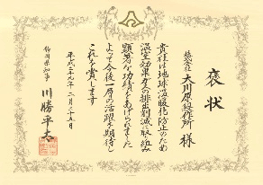 褒状
株式会社
大川原製作所 様
貴社は地球温暖化防止のため
温室効果ガスの排出削減に取り組み
顕著な功績をあげられました
よって今後一層の活躍を期待し
これを賞します
平成二十九年二月
静岡県知事 川勝平太